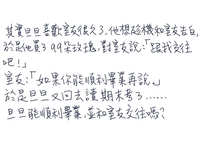 其實旦旦喜歡室友很久了，他想趁機和室友告白，
於是他買了99朵玫瑰，對室友說：「跟我交往
吧！」
室友：「如果你能順利畢業再說。」
於是旦旦又回去讀期末考了……
旦旦能順利畢業，並和室友交往嗎？